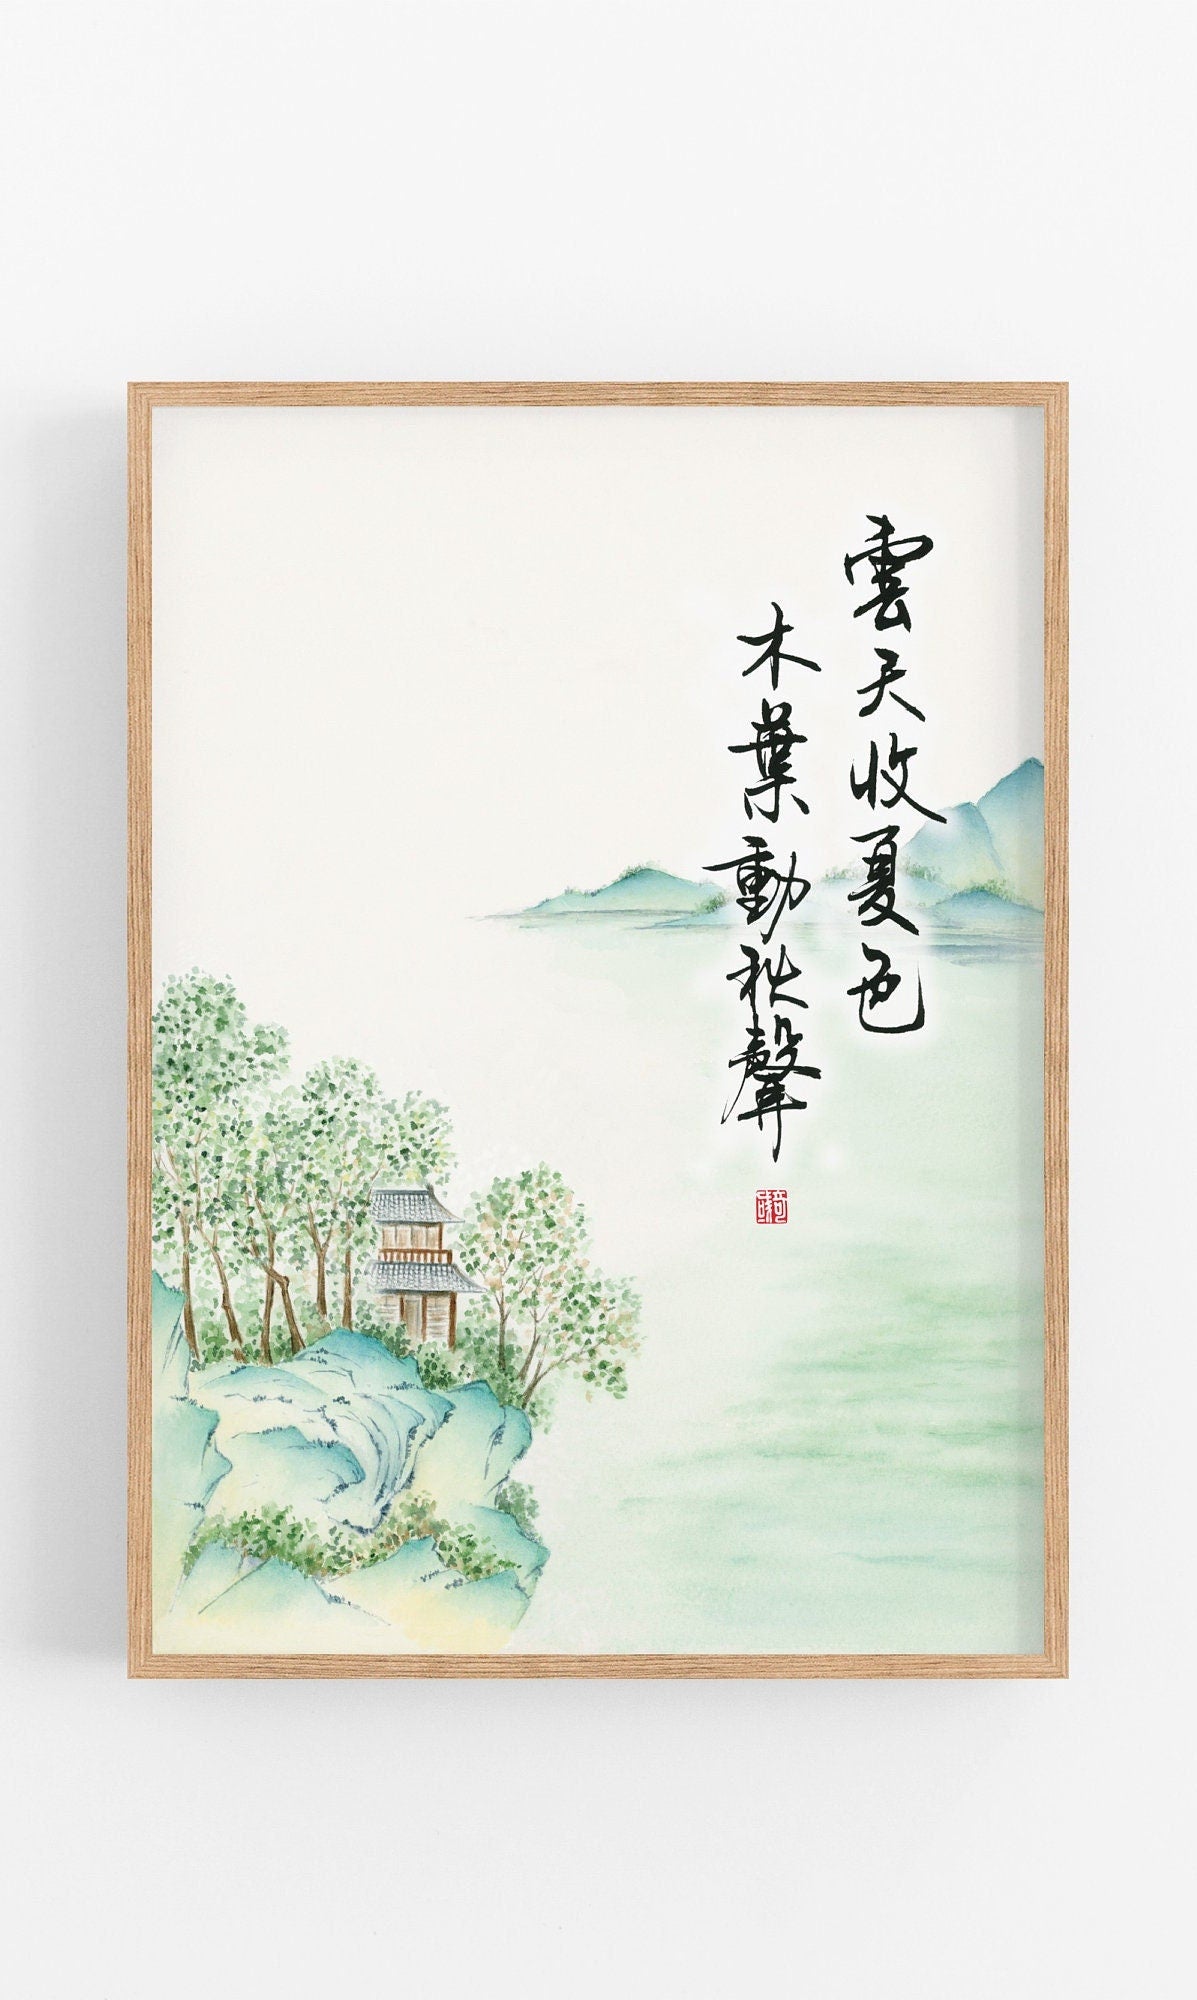 雲天收夏色
木葉動秋聲